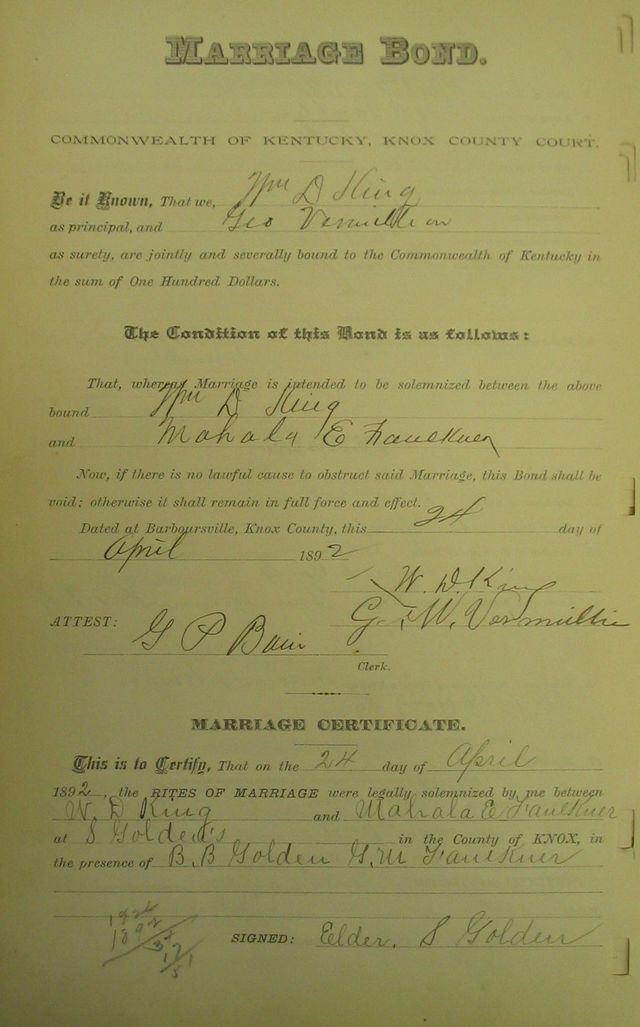 MARRIAGE BOND.
COMMONWEALTH OF KENTUCKY, KNOX COUNTY COURT.
Be it Known, That we, Wm D King
as principal, and Geo Vermillion
as surety, are jointly and severally bound to the Commonwealth of Kentucky in
the sum of One Hundred Dollars.
The Condition of this Bond is as follows:
That, whereas Marriage is intended to be solemnized between the above
bound Wm D King
and Mahala E Faulkner
Now, if there is no lawful cause to obstruct said Marriage, this Bond shall be
void; otherwise it shall remain in full force and effect.
Dated at Barboursville, Knox County, this 24 day of
April 1892
W. D. King
G. W. Vermillion
ATTEST: G P Bain
Clerk.
MARRIAGE CERTIFICATE.
This is to Certify, That on the 24 day of April
1892, the RITES OF MARRIAGE were legally solemnized by me between
W. D King and Mahala E Faulkner
at S Golden's in the County of KNOX, in
the presence of B. B Golden G. M Faulkner
1892
SIGNED: Elder. S Golden